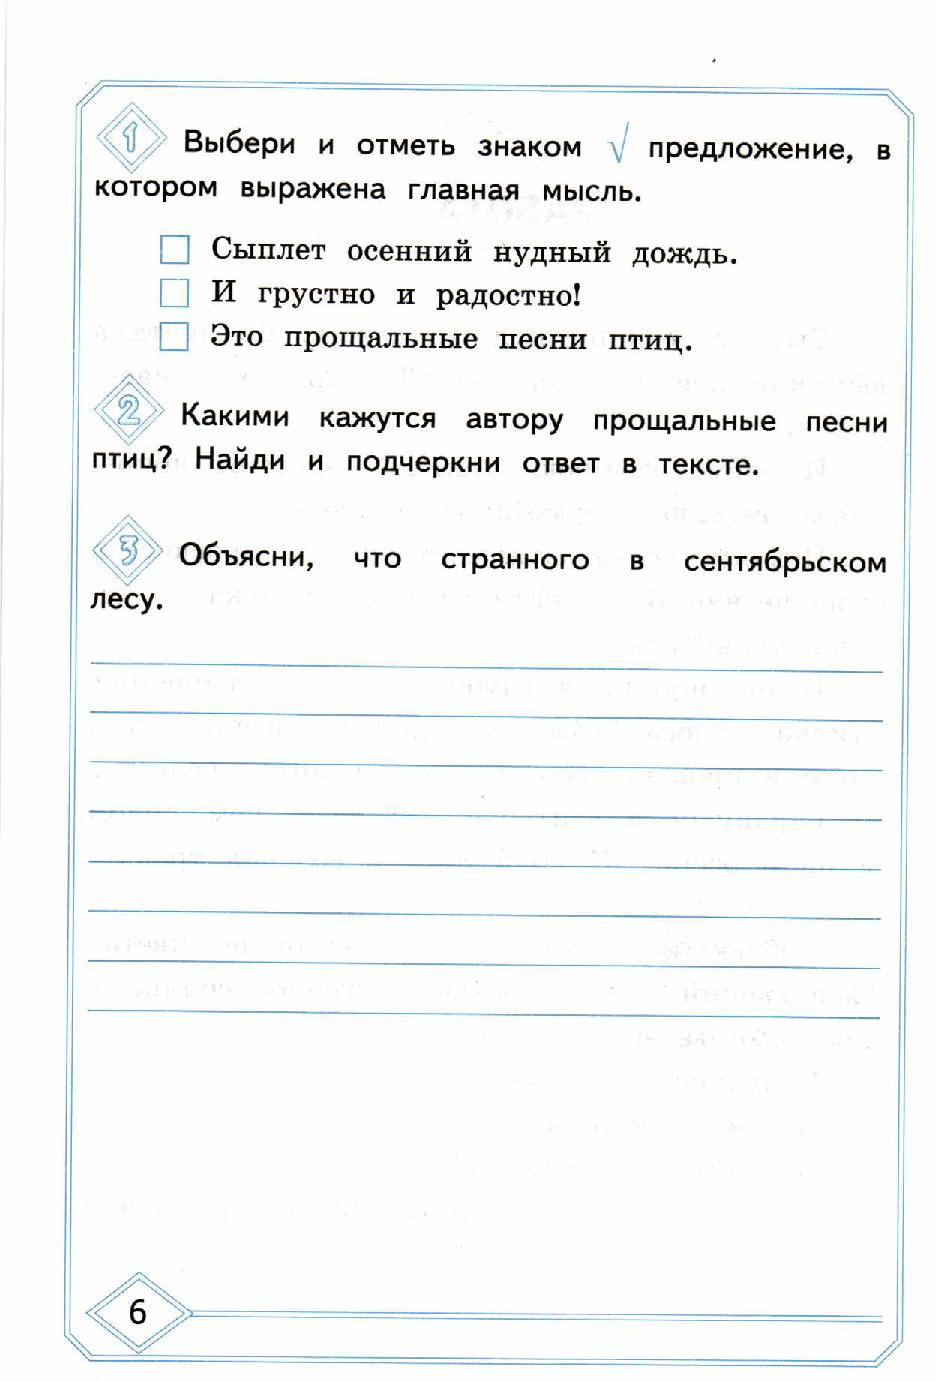 1 Выбери и отметь знаком √ предложение, в
котором выражена главная мысль.
Сыплет осенний нудный дождь.
И грустно и радостно!
Это прощальные песни птиц.
2 Какими кажутся автору прощальные песни
птиц? Найди и подчеркни ответ в тексте.
3 Объясни, что странного в сентябрьском
лесу.
6